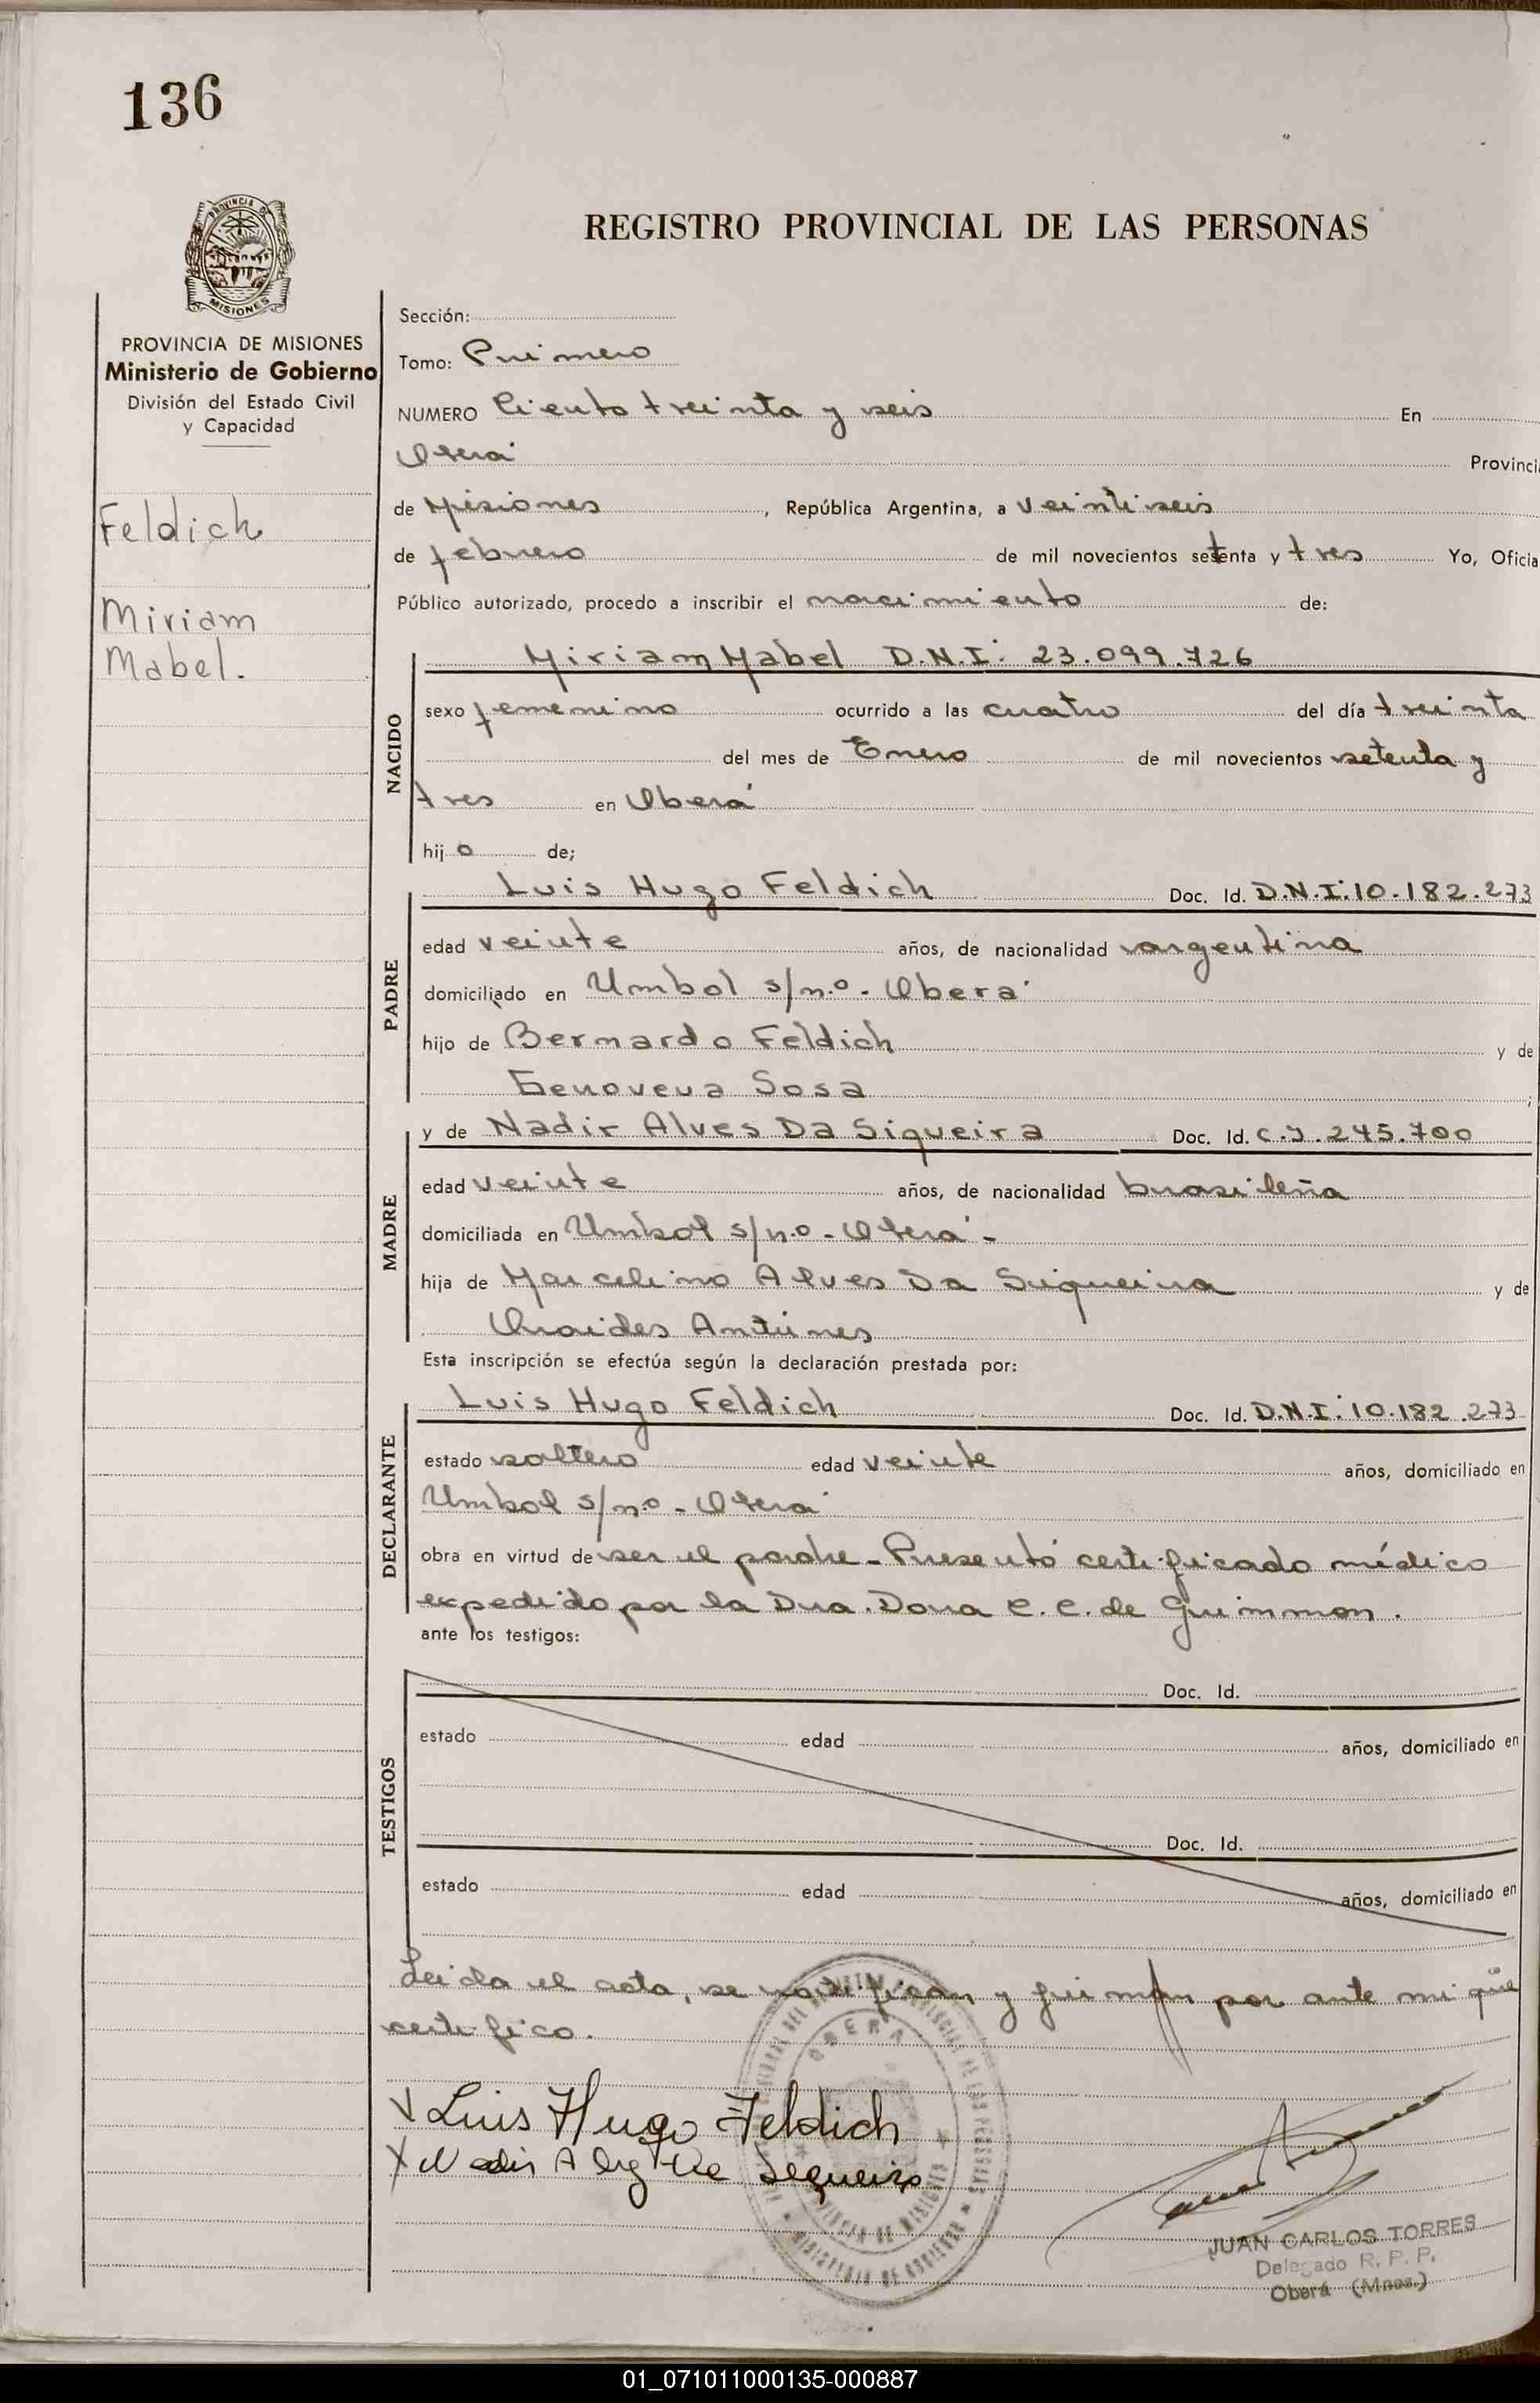 136
PROVINCIA DE
MISIONES
REGISTRO PROVINCIAL DE LAS PERSONAS
PROVINCIA DE MISIONES
Ministerio de Gobierno
División del Estado Civil
y Capacidad
Feldich
Miriam
Mabel.
Sección:
Tomo: Primero
NUMERO Ciento treinta y seis En
Oberá Provinci
de Misiones, República Argentina, a veintiseis
de febrero de mil novecientos setenta y tres Yo, Oficia
Público autorizado, procedo a inscribir el nacimiento de:
NACIDO
Miriam Mabel D.N.I: 23.099.726
sexo femenino ocurrido a las cuatro del día treinta
del mes de Enero de mil novecientos setenta y
tres en Oberá
hij o de;
PADRE
Luis Hugo Feldich Doc. Id. D.N.I: 10.182.273
edad veinte años, de nacionalidad argentina
domiciliado en Umbol s/n.o - Oberá
hijo de Bernardo Feldich y de
Genoveva Sosa;
MADRE
y de Nadir Alves Da Siqueira Doc. Id. C.I. 245.700
edad veinte años, de nacionalidad brasileña
domiciliada en Umbol s/n.o - Oberá -
hija de Marcelino Alves Da Siqueira y de
Antúnes
Esta inscripción se efectúa según la declaración prestada por:
DECLARANTE
Luis Hugo Feldich Doc. Id. D.N.I: 10.182.273
estado soltero edad veinte años, domiciliado en
Umbol s/n.o - Oberá
obra en virtud de ser el padre - Presentó certificado médico
expedido por la Dra. Dora C. C. de Grimmon.
ante los testigos:
TESTIGOS
Doc. Id.
estado edad años, domiciliado en
Doc. Id.
estado edad años, domiciliado en
Leida el acta, se notifican y firman por ante mi que
certifico.
X Luis Hugo Feldich
X Nadir de Sequeira
OBERA
JUAN CARLOS TORRES
Delegado R. P. P.
Oberá (Mnes.)
01_071011000135-000887